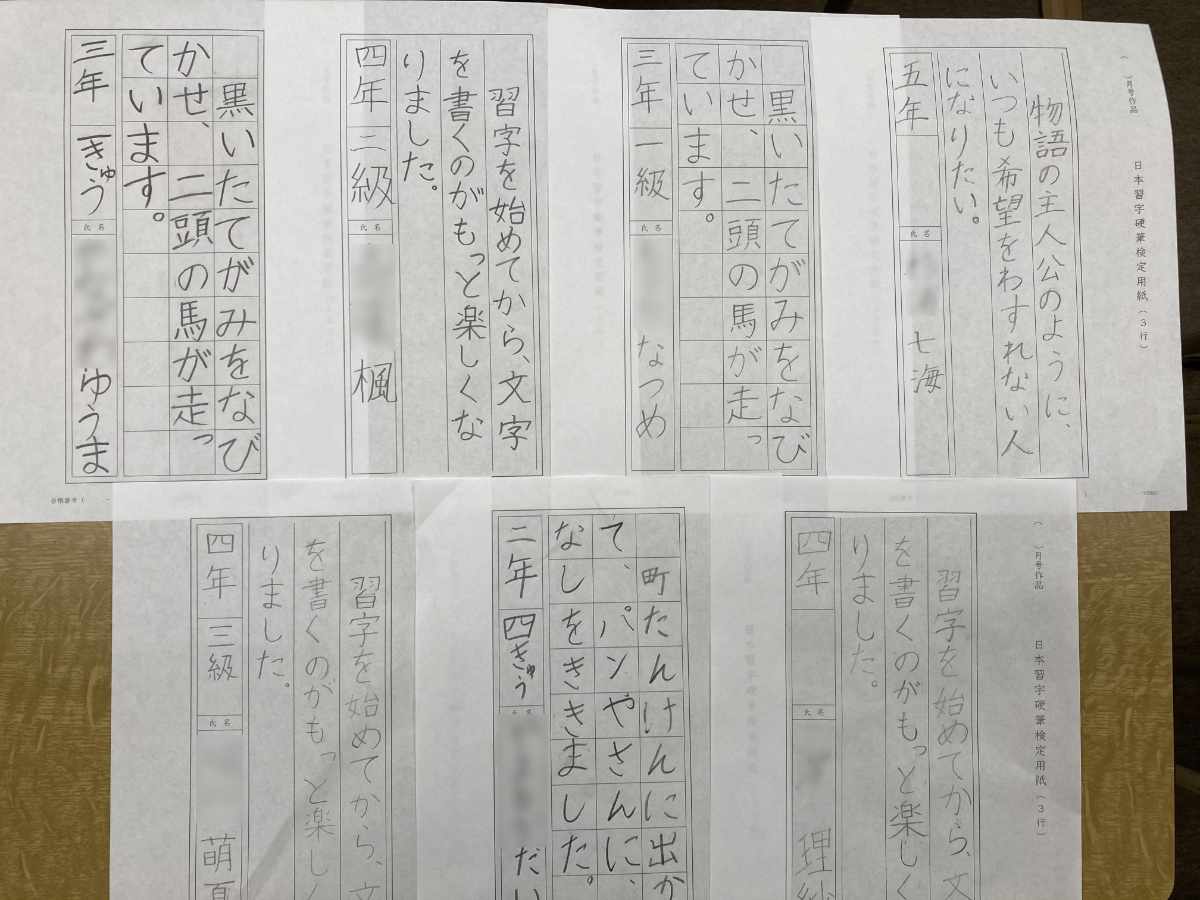 ()月号作品
日本習字硬筆検定用紙(3行)
物語の主人公のように、
いつも希望をわすれない人
になりたい。
五年
氏名
七海
黒いたてがみをなび
かせ、二頭の馬が走っ
ています。
三年 一級
氏名
なつめ
習字を始めてから、文字
を書くのがもっと楽しくな
りました。
四年 二級
氏名
楓
黒いたてがみをなび
かせ、二頭の馬が走っ
ています。
三年 一きゅう
氏名
ゆうま
()月号作品
日本習字硬筆検定用紙(3行)
習字を始めてから、文
を書くのがもっと楽しく
りました。
四年
氏名
理紗
町たんけんに出か
て、パンやさんに、
なしをききました。
二年 四きゅう
氏名
だい
習字を始めてから、文
を書くのがもっと楽しく
りました。
四年 三級
氏名
萌夏